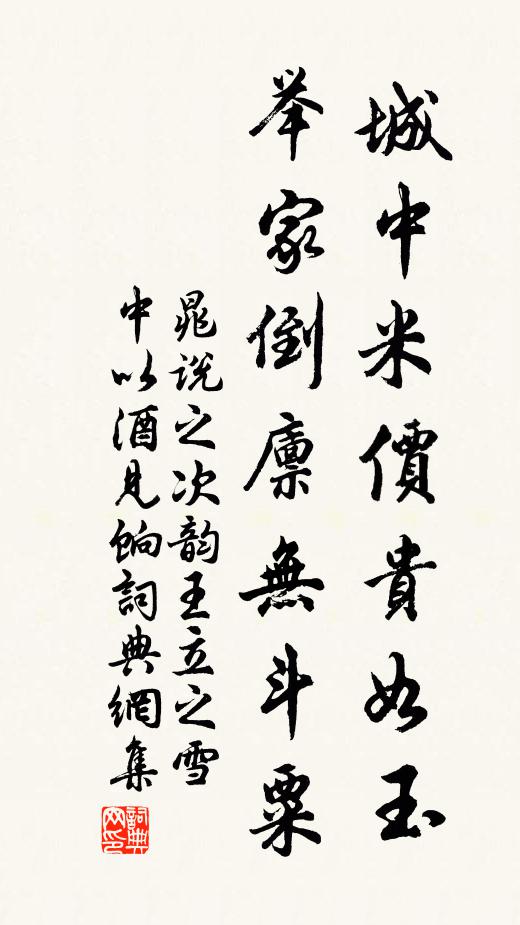 城中米價貴如玉
举家倒廪無斗粟
晁说之次韵王立之雪
中以酒見餉詞典網集
詞典
网印